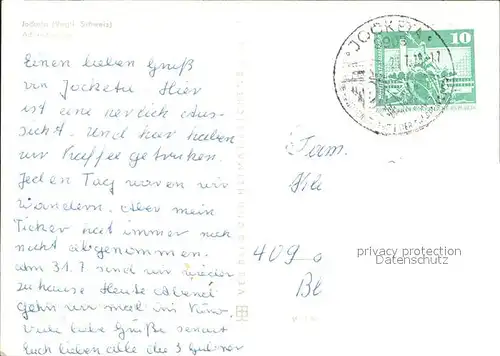 Jocketa (Vogtl. Schweiz)
Einen lieben Gruß
von Jocketa. Hier
ist eine herrlich Aus-
sicht. Und hier haben
wir Kaffee getrunken.
Jeden Tag waren wir
wandern. Aber mein
Dicker hat immer noch
nicht abgenommen.
Am 31.7 sind wir wieder
zu hause Heute Abend
gehn wir mal ins Kino.
Viele liebe Grüße sendet
Euch lieben alle die 3
JOCKETA
10
Fam.
409 0
privacy protection
Datenschutz